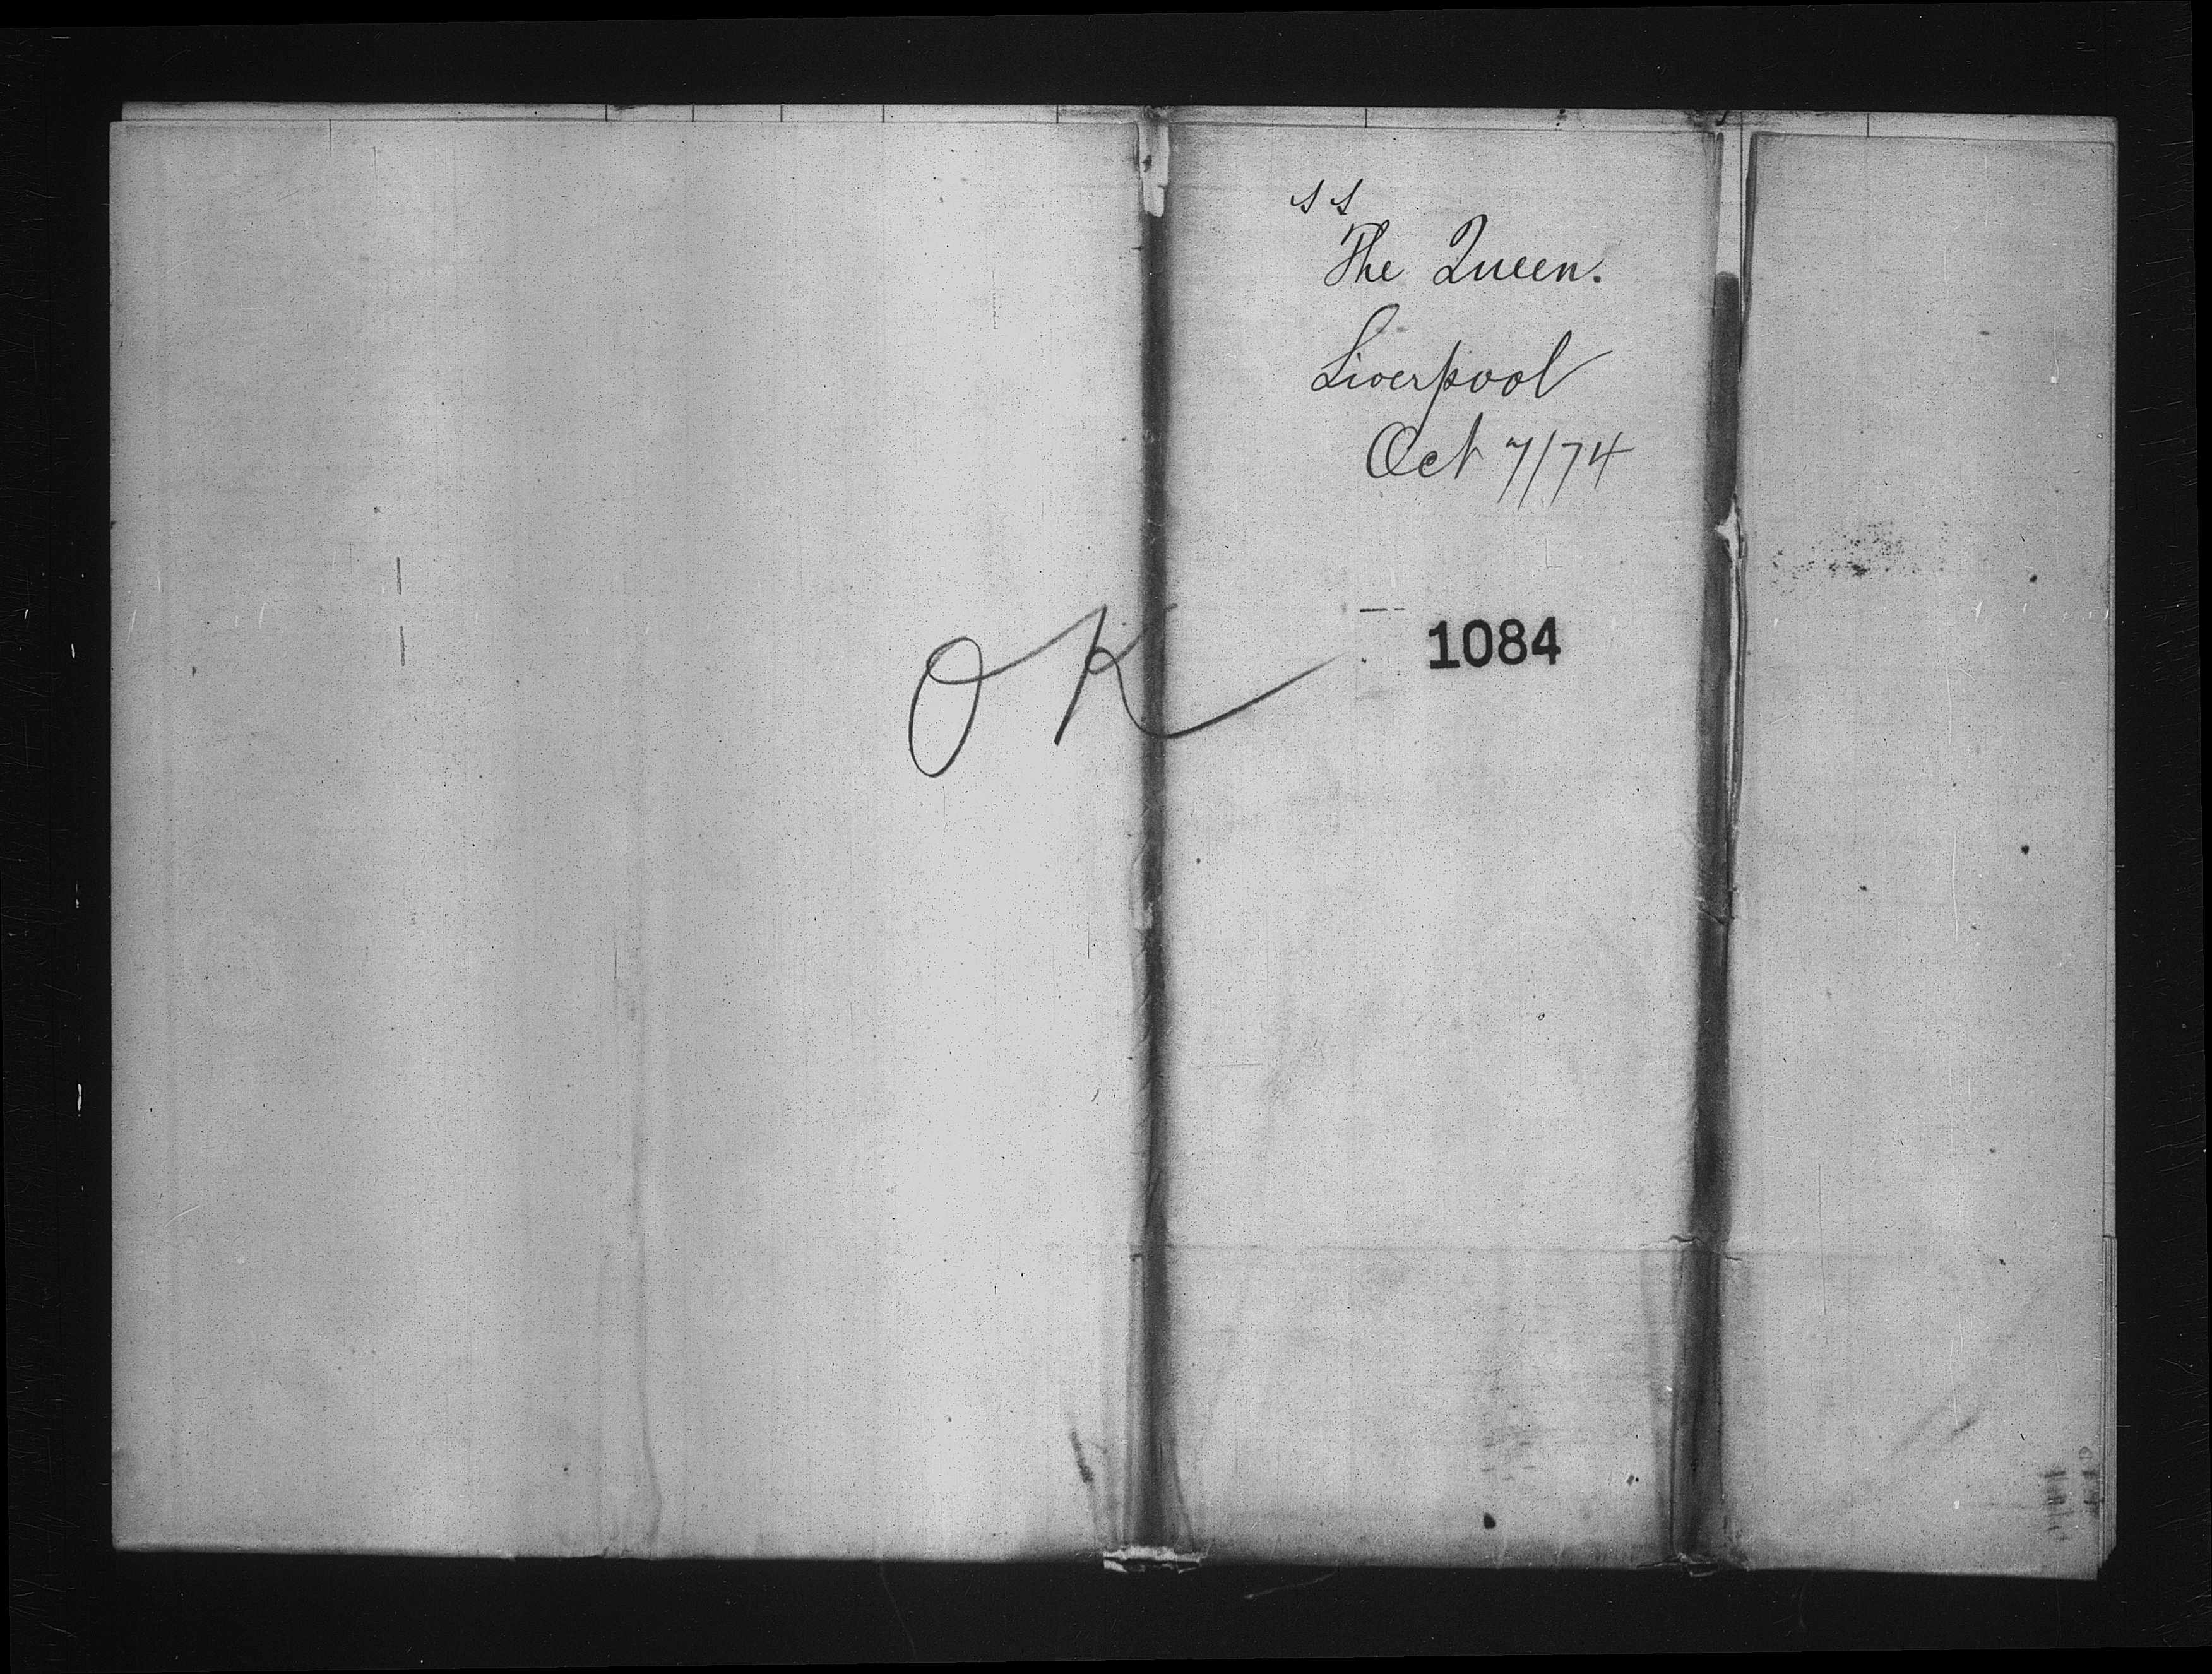 ss
The Queen.
Liverpool
Oct 7/74
OK
1084